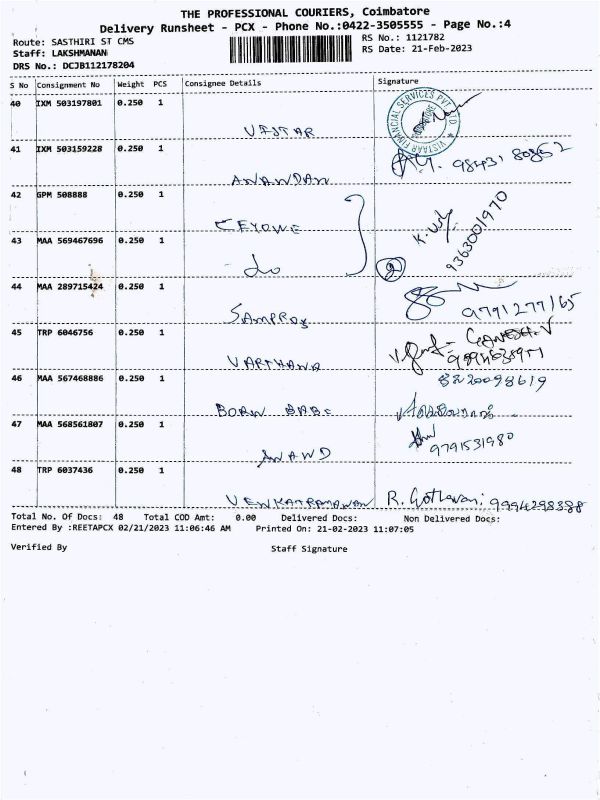 THE PROFESSIONAL COURIERS, Coimbatore
Delivery Runsheet - PCX - Phone No.:0422-3505555 - Page No.:4
Route: SASTHIRI ST CMS
RS No.: 1121782
Staff: LAKSHMANAN
RS Date: 21-Feb-2023
DRS No.: DCJB112178204
S No Consignment No Weight PCS Consignee Details Signature
40 IXM 503197801 0.250 1
VISTAR
VISTAAR FINANCIAL SERVICES PVT LTD
41 IXM 503159228 0.250 1
98431 80852
ANANDAN
42 GPM 508888 0.250 1
CEYONE
9363001970
43 MAA 569467696 0.250 1
do
2
44 MAA 289715424 0.250 1
SAMPROS
9791277165
45 TRP 6046756 0.250 1
GANESH.V
VARTHANA
46 MAA 567468886 0.250 1
8220098619
BORN BABE
47 MAA 568561807 0.250 1
9791531980
ANAND
48 TRP 6037436 0.250 1
VENKATRAMANAN R. Gothavari 9994298388
Total No. Of Docs: 48 Total COD Amt: 0.00 Delivered Docs: Non Delivered Docs:
Entered By :REETAPCX 02/21/2023 11:06:46 AM Printed On: 21-02-2023 11:07:05
Verified By Staff Signature